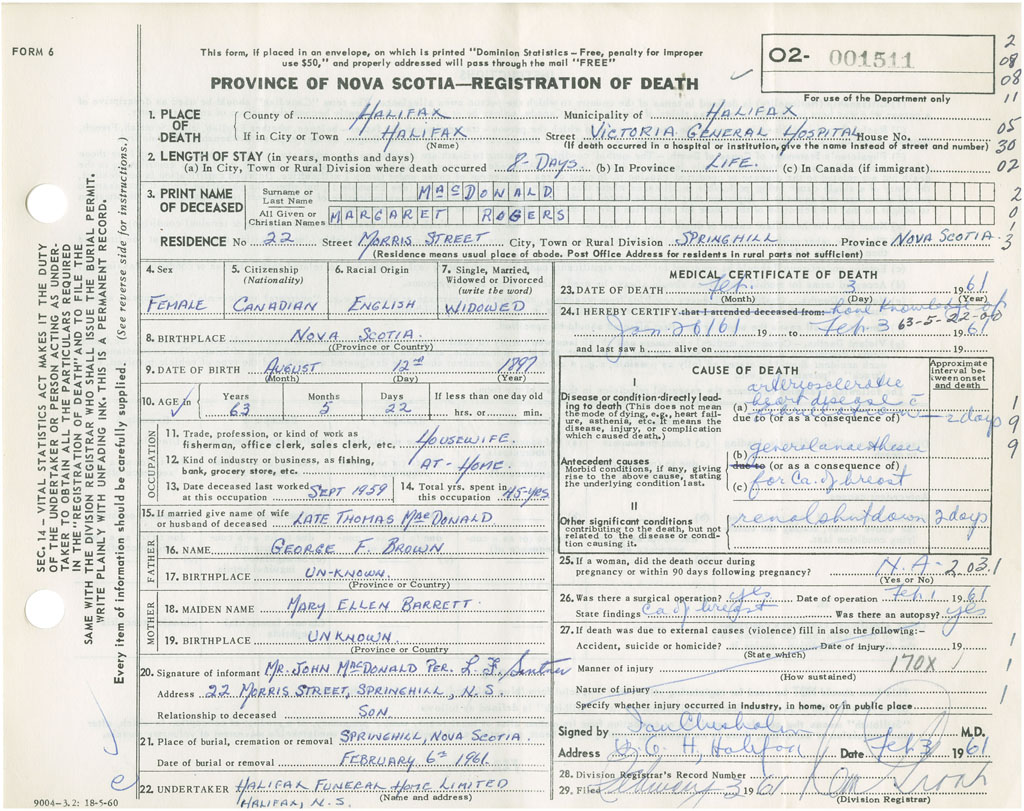 FORM 6
This form, if placed in an envelope, on which is printed "Dominion Statistics – Free, penalty for improper
use $50," and properly addressed will pass through the mail "FREE"
PROVINCE OF NOVA SCOTIA—REGISTRATION OF DEATH
O2- 001511
For use of the Department only
2
08
08
11
05
30
02
2
0
1
3
1. PLACE OF DEATH
County of HALIFAX Municipality of HALIFAX
If in City or Town HALIFAX Street VICTORIA GENERAL HOSPITAL House No.
(Name) (If death occurred in a hospital or institution, give the name instead of street and number)
2. LENGTH OF STAY (in years, months and days)
(a) In City, Town or Rural Division where death occurred 8-DAYS. (b) In Province LIFE. (c) In Canada (if immigrant)
3. PRINT NAME OF DECEASED
Surname or Last Name MACDONALD
All Given or Christian Names MARGARET ROGERS
RESIDENCE No 22 Street MORRIS STREET City, Town or Rural Division SPRINGHILL Province NOVA SCOTIA
(Residence means usual place of abode. Post Office Address for residents in rural parts not sufficient)
4. Sex
FEMALE
5. Citizenship
(Nationality)
CANADIAN
6. Racial Origin
ENGLISH
7. Single, Married, Widowed or Divorced
(write the word)
WIDOWED
8. BIRTHPLACE NOVA SCOTIA.
(Province or Country)
9. DATE OF BIRTH AUGUST 12th 1897
(Month) (Day) (Year)
10. AGE in
Years Months Days If less than one day old
63 5 22 hrs. or min.
OCCUPATION
11. Trade, profession, or kind of work as
fisherman, office clerk, sales clerk, etc. HOUSEWIFE.
12. Kind of industry or business, as fishing,
bank, grocery store, etc. AT-HOME.
13. Date deceased last worked
at this occupation SEPT 1959
14. Total yrs. spent in
this occupation 45-yrs.
15. If married give name of wife
or husband of deceased LATE THOMAS MACDONALD
FATHER
16. NAME GEORGE F. BROWN
17. BIRTHPLACE UN-KNOWN.
(Province or Country)
MOTHER
18. MAIDEN NAME MARY ELLEN BARRETT.
19. BIRTHPLACE UNKNOWN.
(Province or Country)
20. Signature of informant MR. JOHN MACDONALD PER. L. F.
Address 22 MORRIS STREET, SPRINGHILL, N.S.
Relationship to deceased SON.
21. Place of burial, cremation or removal SPRINGHILL, NOVA SCOTIA.
Date of burial or removal FEBRUARY 6th 1961.
22. UNDERTAKER HALIFAX FUNERAL HOME LIMITED
(Name and address)
HALIFAX, N.S.
9004-3.2: 18-5-60
MEDICAL CERTIFICATE OF DEATH
23. DATE OF DEATH Feb. 3 1961
(Month) (Day) (Year)
24. I HEREBY CERTIFY that I attended deceased from: have knowledge of
63-5-22-00
Jan 26/61 19 to Feb. 3 1961
and last saw h alive on 19
CAUSE OF DEATH
Approximate interval between onset and death
I
Disease or condition directly leading to death (This does not mean the mode of dying, e.g., heart failure, asthenia, etc. It means the disease, injury, or complication which caused death.)
arteriosclerotic
(a) heart disease c
due to (or as a consequence of) 2 days
Antecedent causes
Morbid conditions, if any, giving rise to the above cause, stating the underlying condition last.
(b) general anaesthesia
due to (or as a consequence of)
(c) for Ca. of breast
II
Other significant conditions
contributing to the death, but not related to the disease or condition causing it.
renal shutdown 2 days
1
9
9
25. If a woman, did the death occur during
pregnancy or within 90 days following pregnancy? N.A- 203.1
(Yes or No)
26. Was there a surgical operation? yes Date of operation Feb. 1 1961
State findings Ca. of breast Was there an autopsy? yes
27. If death was due to external causes (violence) fill in also the following:—
Accident, suicide or homicide? Date of injury 19
(State which)
Manner of injury 170X
(How sustained)
Nature of injury
Specify whether injury occurred in industry, in home, or in public place
1
1
1
Signed by Ian Chisholm M.D.
Address V. G. H, Halifax Date Feb 3/ 1961
28. Division Registrar's Record Number
29. Filed February 3 1961
(Division Registrar)
SEC. 14 – VITAL STATISTICS ACT MAKES IT THE DUTY
OF THE UNDERTAKER OR PERSON ACTING AS UNDER-
TAKER TO OBTAIN ALL THE PARTICULARS REQUIRED
IN THE "REGISTRATION OF DEATH" AND TO FILE THE
SAME WITH THE DIVISION REGISTRAR WHO SHALL ISSUE THE BURIAL PERMIT.
WRITE PLAINLY WITH UNFADING INK. THIS IS A PERMANENT RECORD.
Every item of information should be carefully supplied. (See reverse side for instructions.)